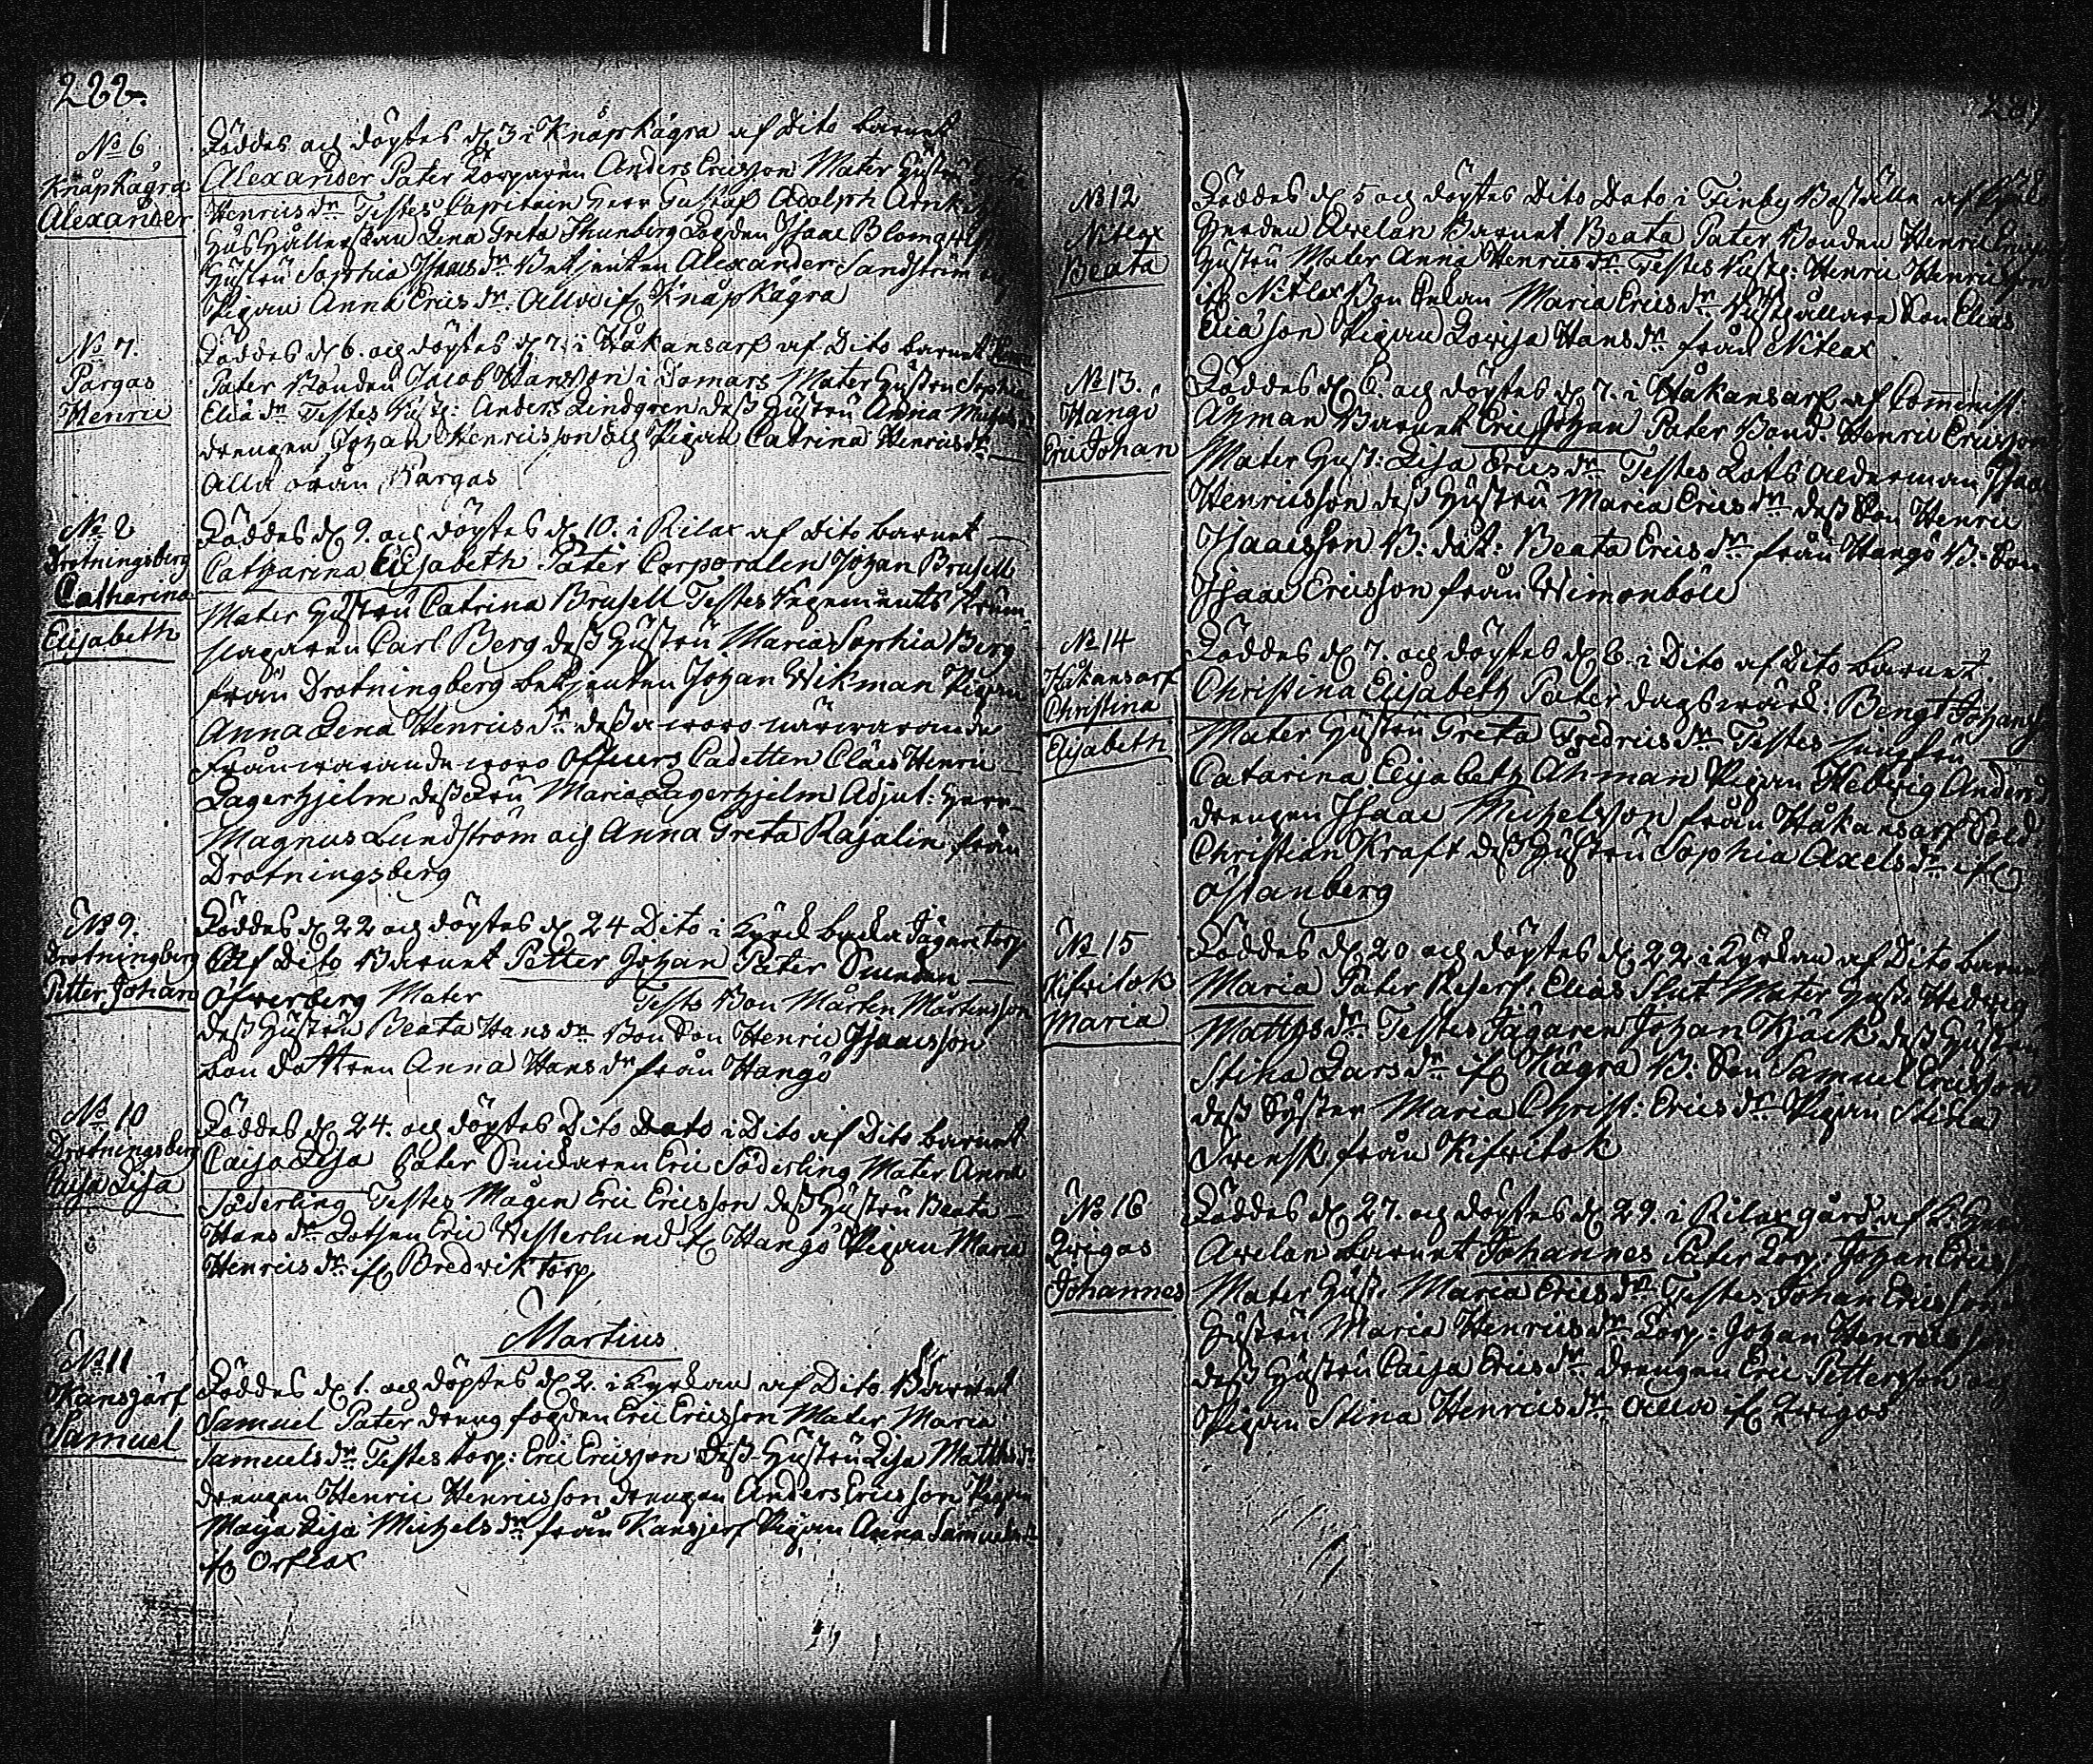 288.
No 6
Knåpkågra
Alexander
Föddes och döptes d. 3 i Knåpkågra af Dito barnet
Alexander Pater Torparen Anders Ericsson Mater Hustru
Henricsdr Testes Capitain Herr Gustaf Adolph
Hushållerskan Lena Greta Thunberg Isaac Blomqvist
Hustru Sophia Isaacsdr Betjenten Alexander Sandström
Pigan Anna Ericsdr Alla ifr. Knåpkågra
No 7.
Pargas
Henric
Föddes d. 6. och döptes d. 7. i Håkansarf af Dito barnet
Pater Bonden Jacob Hansson i Tomars Mater Hustru Sophia
Eliædr Testes Anders Lindgren dess Hustru Anna
drengen Johan Henricsson och Pigan Catrina Henricsdr
Alla från Pargas
No 8
Drotningsberg
Catharina
Elisabeth
Föddes d. 9. och döptes d. 10. i Rilax af dito barnet
Catharina Elisabeth Pater Corporalen Johan Brusell
Mater Hustru Catrina Brusell Testes Regements Trum-
slagaren Carl Berg dess Hustru Maria Sophia Berg
från Drotningberg betjenten Johan Wikman Pigan
Anna Lena Henricsdr dessa woro närwarande
Frånwarande woro Officers Cadetten Claes Henric
Lagerhjelm dess Fru Maria Lagerhjelm Adjut: Herr
Magnus Lundström och Anna Greta Rajalin från
Drotningsberg
No 9.
Drotningberg
Petter Johan
Föddes d. 22 och döptes d. 24 Dito i backa Jägaretorp
Af Dito Barnet Petter Johan Pater
Öfwerberg Mater Testes Bon Mårten Mårtensson
dess Hustru Beata Hansdr Bonson Henric Isaacsson
bondottren Anna Hansdr från Hangö
No 10
Drotningsberg
Caisa Lisa
Föddes d. 24. och döptes Dito Dato i Dito af Dito barnet
Caisa Lisa Pater Smidaren Eric Söderling Mater Anna
Söderling Testes Mågen Eric Ericsson dess Hustru Beata
Hansdr Lotsen Eric Westerlund ifr. Hangö Pigan Maria
Henricsdr ifr. Bredviktorp
Martius
No 11
Kansjärf
Samuel
Föddes d. 1. och döptes d. 2. i Kyrkan af Dito Barnet
Samuel Pater drengfogden Eric Ericsson Mater Maria
Samuelsdr Testes torp: Eric Ericsson Dess Hustru Lisa Matthsdr
drengen Henric Henricsson drengen Anders Ericsson Pigan
Maija Lisa Michelsdr från Kansjerf Pigan Anna Samuelsdr
ifr. Orslax
No 12
Nitlax
Beata
Föddes d. 5 och döptes Dito Dato i Finby Boställe af
Herden Awelan Barnet Beata Pater Bonden Henric
Hustru Mater Anna Henricsdr Testes Henric Henricsson
ifr. Nitlax Maria Ericsdr Elias
Eliasson Pigan Lowisa Hansdr från Nitlax
No 13.
Hangö
Eric Johan
Föddes d. 6. och döptes d. 7. i Håkansarf af Comminist
Åhman Barnet Eric Johan Pater Bond: Henric Ericsson
Mater Hust: Lisa Ericsdr Testes Lots Alderman Isaac
Henricsson dess Hustru Maria Ericsdr dess Son Henric
Isaacsson B: dot: Beata Ericsdr från Hangö B: Son
Isaac Ericsson från Wimonböle
No 14
Håkansarf
Christina
Elisabeth
Föddes d. 7. och döptes d. 8. i Dito af Dito barnet.
Christina Elisabeth Pater dagswärk: Bengt Johansson
Mater Hustru Greta Fredricsdr Testes Jungfru
Catarina Elisabeth Åhman Pigan Hedwig Andersdr
drengen Isaac Michelsson från Håkansarf Sold:
Christian Kraft dess Hustru Sophia Axelsdr ifr.
Östanberg
No 15
Kifwitok
Maria
Föddes d. 20 och döptes d. 22 i Kyrkan af Dito barnet
Maria Pater Reserf: Elias Slut Mater Hust: Hedwig
Mattsdr Testes Jägaren Johan Kjäck dess Hustru
Stina Larsdr ifr. Kågra B: Son Samuel Ericsson
dess Syster Maria Christ: Ericsdr Pigan Stina
Swensk från Kifwitok
No 16
Qwigos
Johannes
Föddes d. 27. och döptes d. 29. i Rilax gård af
Awelan barnet Johannes Pater Torp: Johan Erics
Mater Hust: Maria Ericsdr Testes Johan Ericsson
Hustru Maria Henricsdr Torp: Johan Henricsson
dess Hustru Caisa Ericsdr drengen Eric Pettersson och
Pigan Stina Henricsdr alla ifr. Qwigos